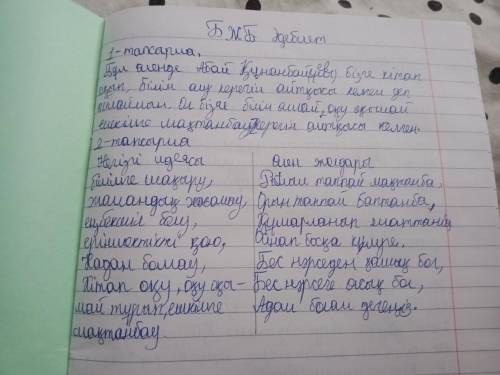 БЖБ Әдебиет
1-тапсырма.
Бұл өлеңде Абай Құнанбайұлы бізге кітап
оқып, білім алу керегін айтқысы келген деп
ойлаймын. Ол бізге білім алмай, оқу оқымай
ешкімге мақтанбау керегін айтқысы келген.
2-тапсырма
Негізгі идеясы
білімге шақыру,
жамандық жасамау,
еңбекшіл болу,
ерішектікті қою,
Надан болмау,
Кітап оқу, оқу оқы-
май тұрып, ешкімге
мақтанбау
Өлең жолдары
Ғылым таппай мақтанба,
Орын таппай баптанба,
Құмарланып шаттанба,
Ойнап босқа күлуге.
Бес нәрседен қашық бол,
Бес нәрсеге асық бол,
Адам болам десеңіз.